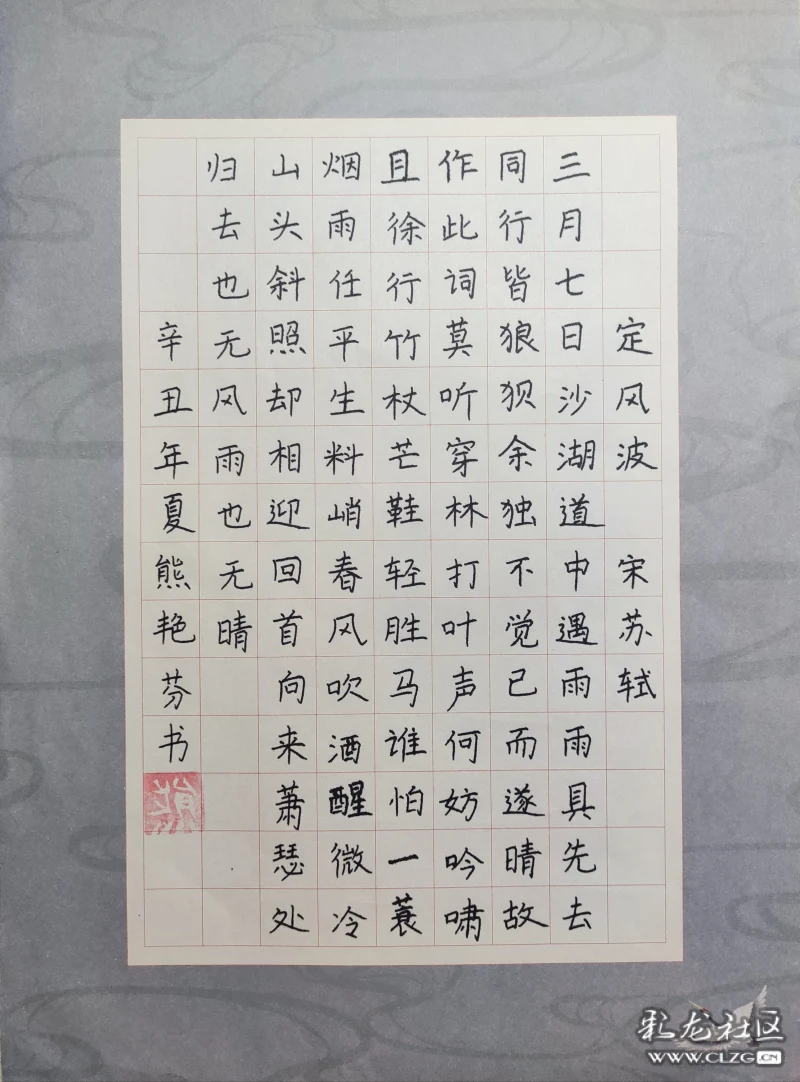 定风波 宋苏轼
三月七日沙湖道中遇雨雨具先去
同行皆狼狈余独不觉已而遂晴故
作此词莫听穿林打叶声何妨吟啸
且徐行竹杖芒鞋轻胜马谁怕一蓑
烟雨任平生料峭春风吹酒醒微冷
山头斜照却相迎回首向来萧瑟处
归去也无风雨也无晴
辛丑年夏熊艳芬书
彩龙社区
www.CLZG.CN